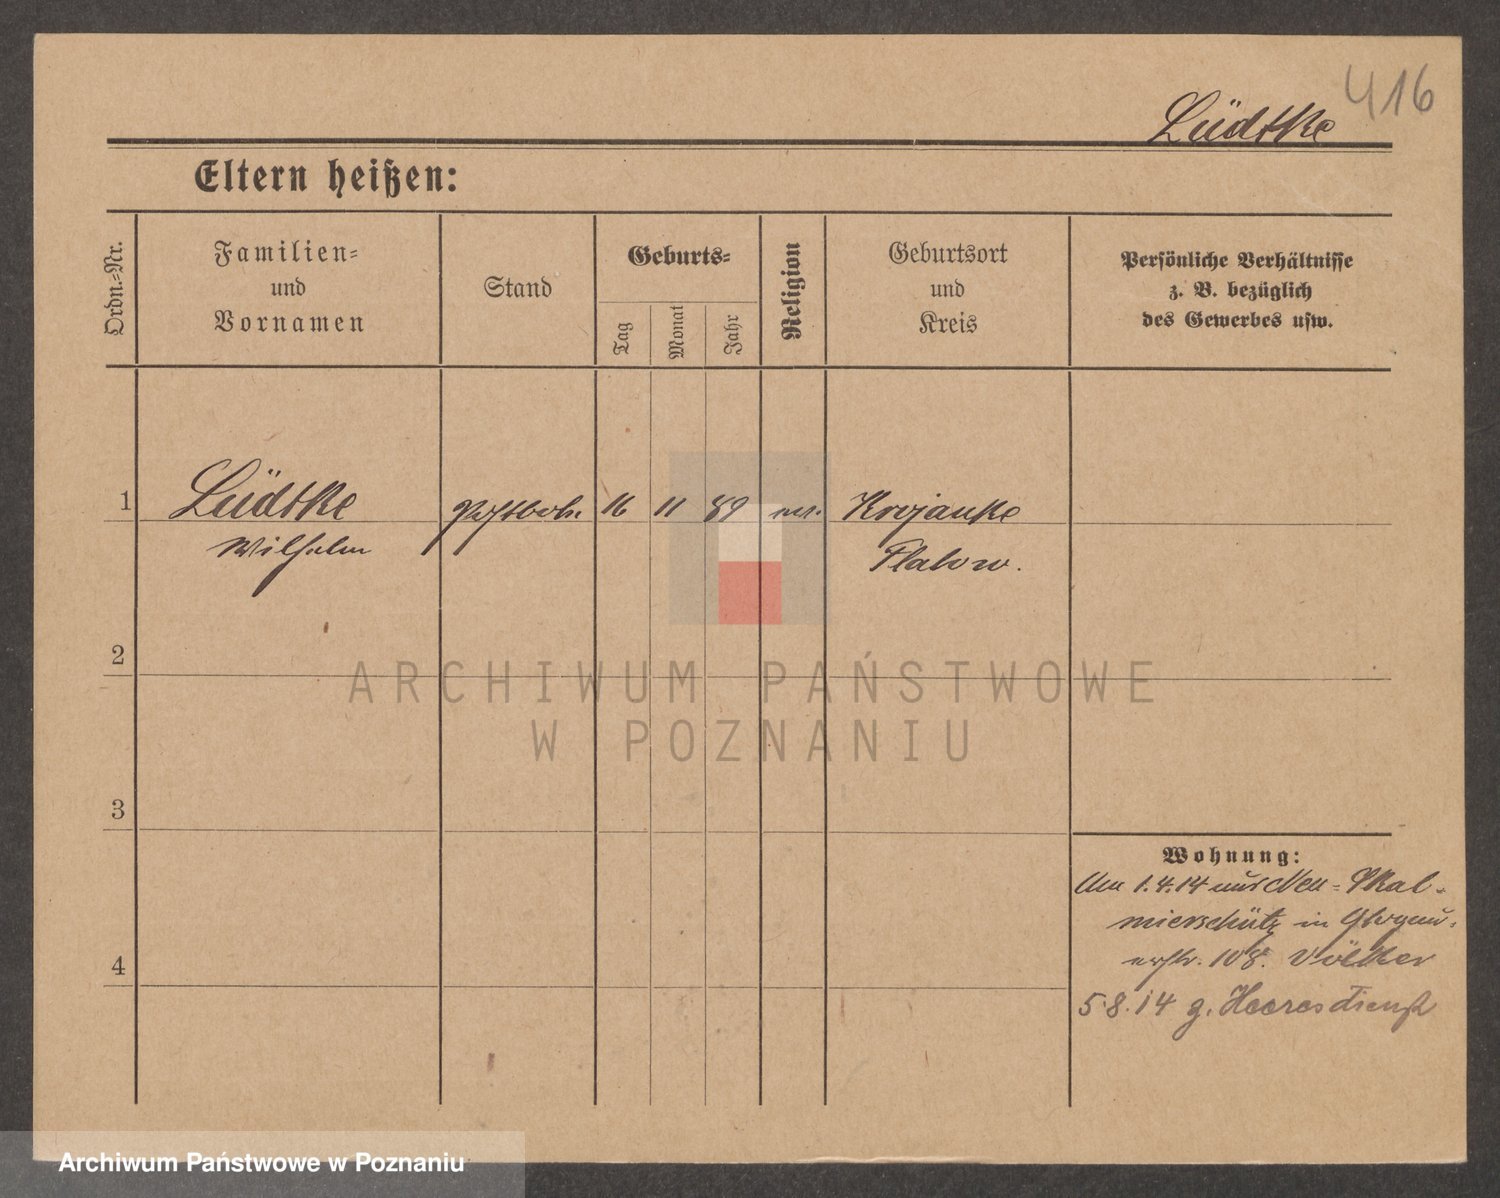 416
Lüdtke
Eltern heißen:
Ordn.-Nr.
Familien-
und
Vornamen
Stand
Geburts-
Tag
Monat
Jahr
Religion
Geburtsort
und
Kreis
Persönliche Verhältnisse
z. B. bezüglich
des Gewerbes usw.
1
Lüdtke
Wilhelm
16
11
89
Krojanke
Flatow.
2
3
4
ARCHIWUM PAŃSTWOWE
W POZNANIU
Wohnung:
Am 1.4.14 aus Neu-Skal-
mierschütz in Glogau-
erstr. 108. Völker
5.8.14 z. Heeresdienst
Archiwum Państwowe w Poznaniu